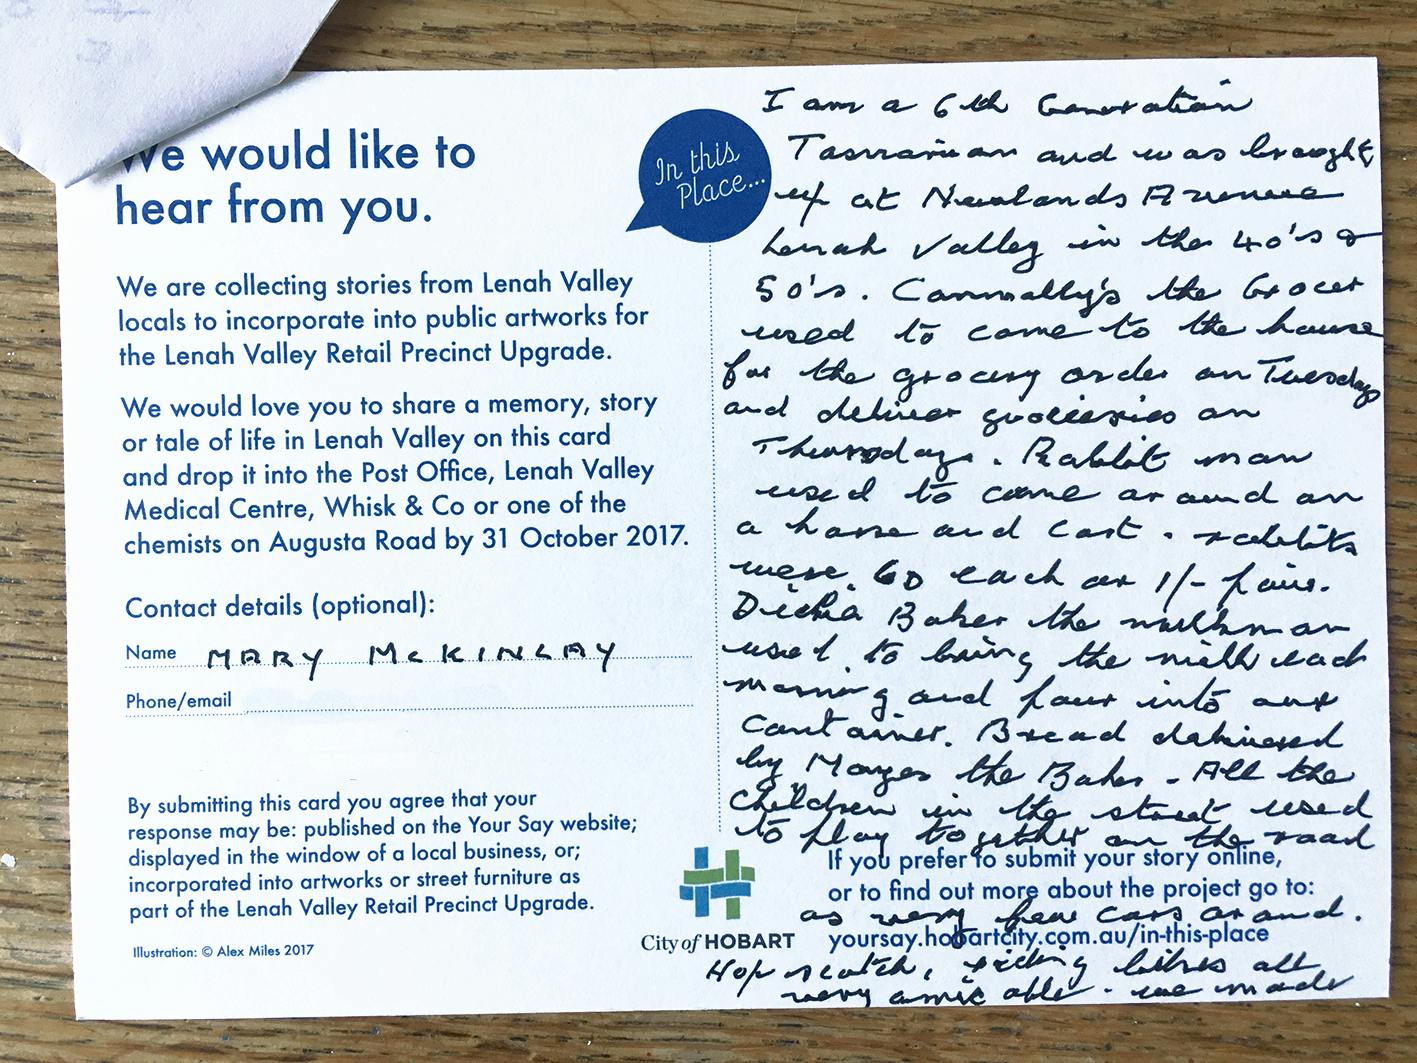 We would like to
hear from you.
We are collecting stories from Lenah Valley
locals to incorporate into public artworks for
the Lenah Valley Retail Precinct Upgrade.
We would love you to share a memory, story
or tale of life in Lenah Valley on this card
and drop it into the Post Office, Lenah Valley
Medical Centre, Whisk & Co or one of the
chemists on Augusta Road by 31 October 2017.
Contact details (optional):
Name MARY McKINLAY
Phone/email
By submitting this card you agree that your
response may be: published on the Your Say website;
displayed in the window of a local business, or;
incorporated into artworks or street furniture as
part of the Lenah Valley Retail Precinct Upgrade.
Illustration: © Alex Miles 2017
In this
Place...
I am a 6th Generation
Tasmanian and was brought
up at Newlands Avenue
Lenah Valley in the 40's &
50's. Connolly's the Grocer
used to come to the house
for the grocery order on Tuesday
and deliver groceries on
Thursdays. Rabbit man
used to come around on
a horse and cart. rabbits
were 6D each or 1/- pair.
Baker the milkman
used to bring the milk each
morning and pour into our
container. Bread delivered
by Mayes the Baker. All the
children in the street used
to play together on the road
as very few cars around.
Hop scotch, riding bikes all
very amicable. we made
City of HOBART
If you prefer to submit your story online,
or to find out more about the project go to:
yoursay.hobartcity.com.au/in-this-place